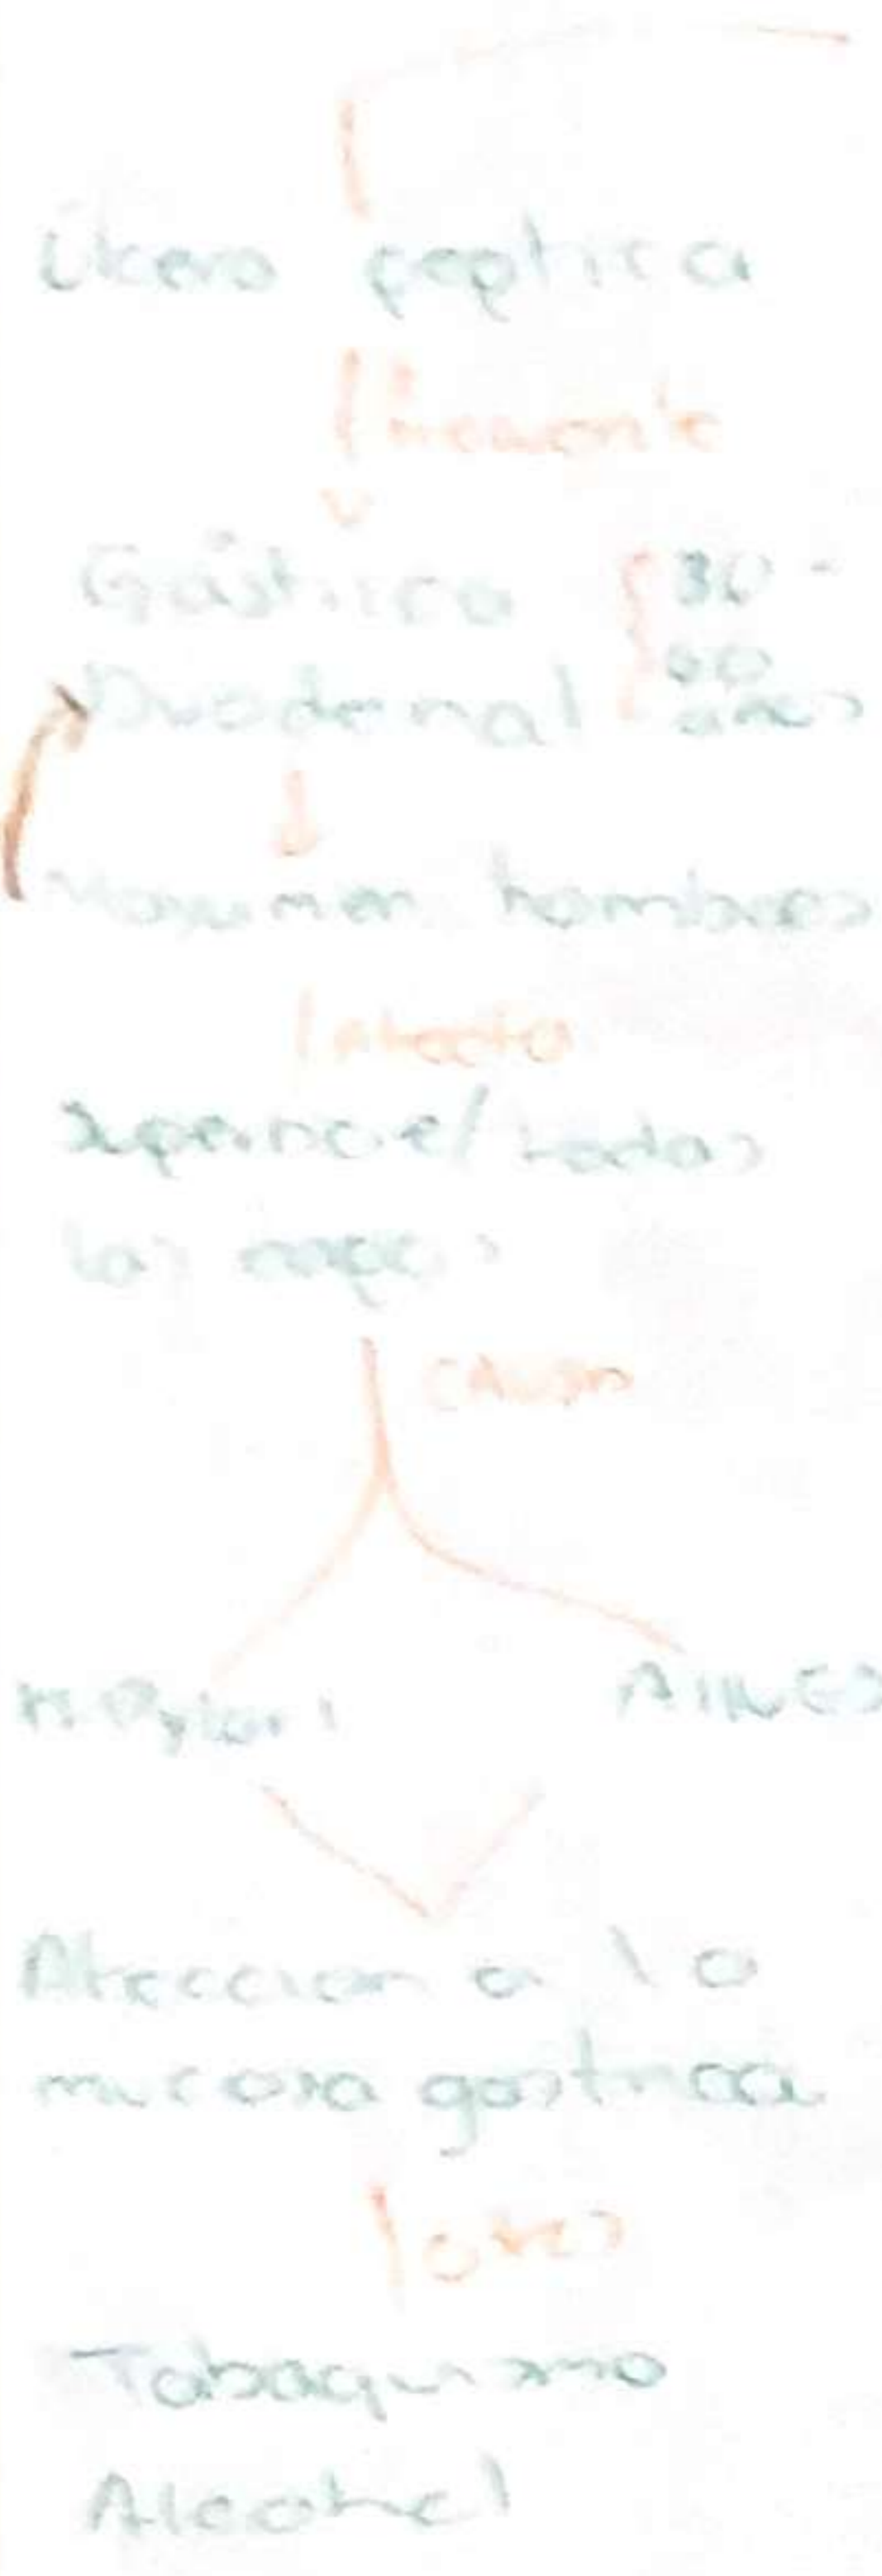 Úlcera péptica
Frecuente
Gástrica
30 -
60
años
Duodenal
hombres
Afecta
Superficie/todas
las capas
causas
H. Pylori
AINES
Afeccion a la
mucosa gastrica
otros
Tabaquismo
Alcohol